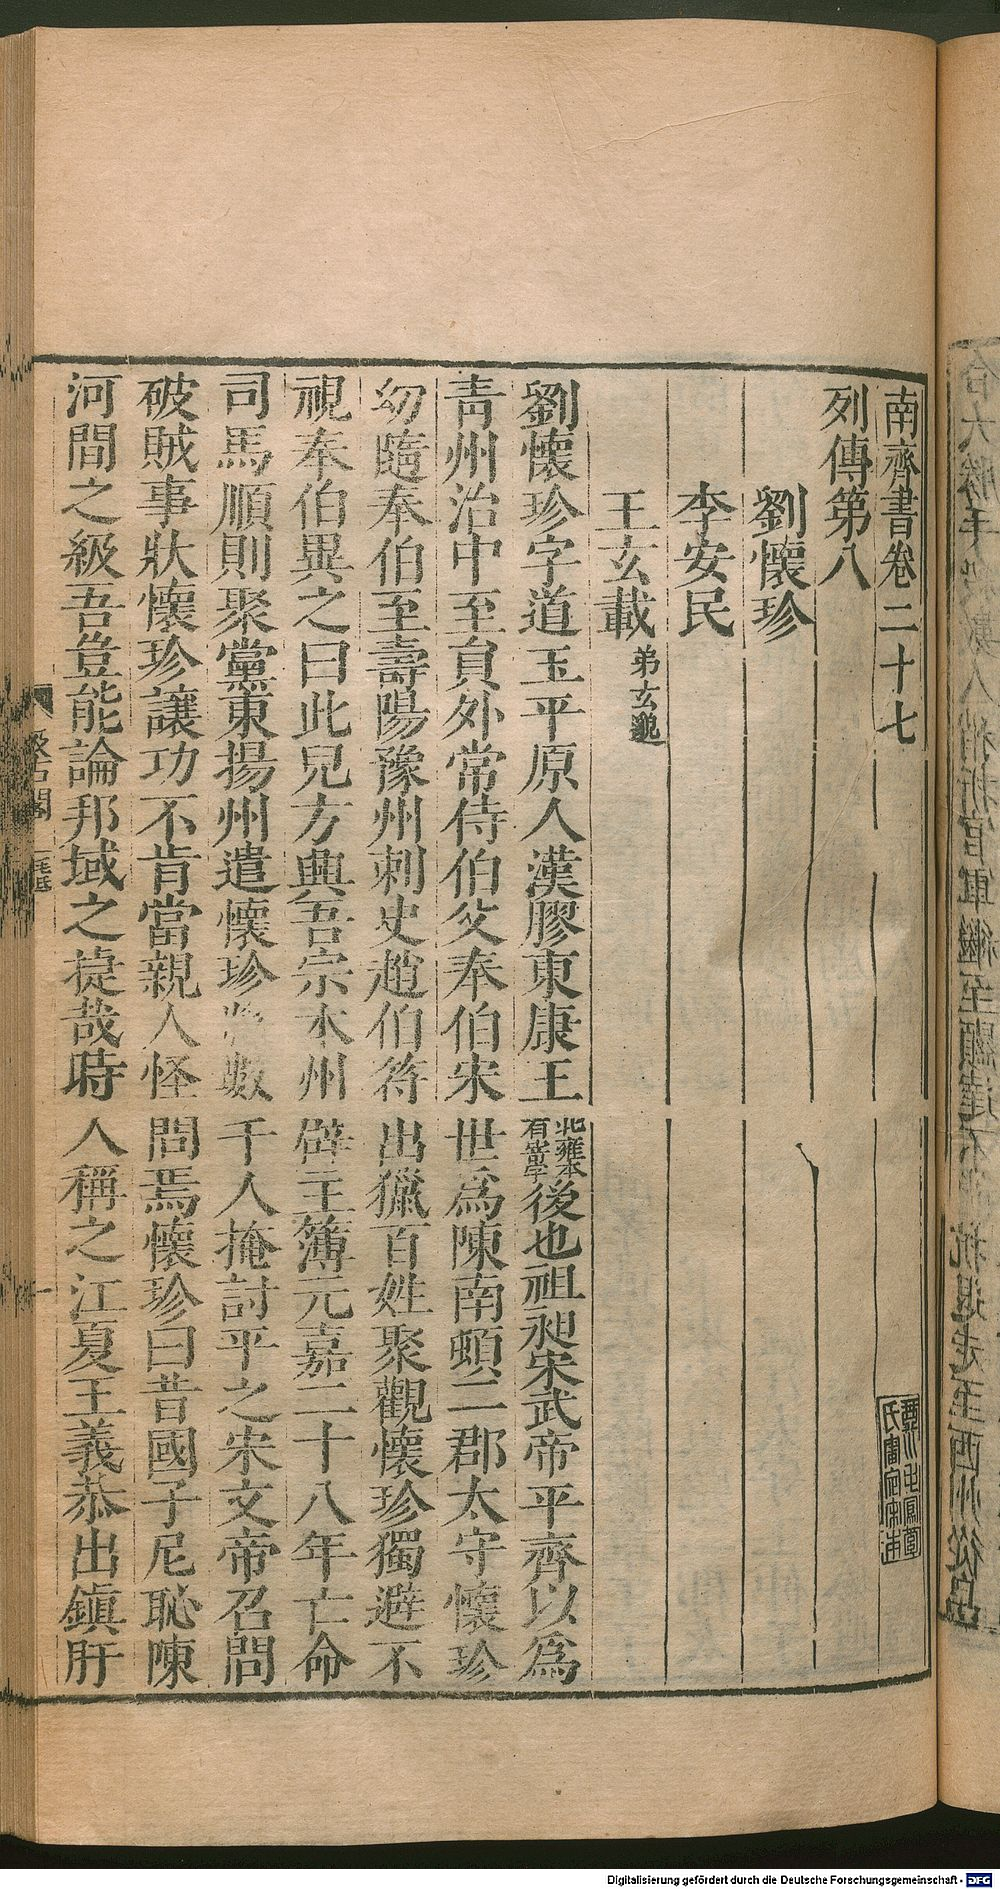 南齊書卷二十七
列傳第八
劉懷珍
李安民
王玄載 弟玄邈
劉懷珍字道玉平原人漢膠東康王北雍本有寄字後也祖昶宋武帝平齊以為
青州治中至員外常侍伯父奉伯宋世爲陳南頓二郡太守懷珍
幼隨奉伯至壽陽豫州刺史趙伯符出獵百姓聚觀懷珍獨避不
視奉伯異之曰此兒方興吾宗本州辟主簿元嘉二十八年亡命
司馬順則聚黨東揚州遣懷珍將數千人掩討平之宋文帝召問
破賊事狀懷珍讓功不肯當親人怪問焉懷珍曰昔國子尼恥陳
河間之級吾豈能論邦域之捷哉時人稱之江夏王義恭出鎮盱
Digitalisierung gefördert durch die Deutsche Forschungsgemeinschaft - DFG